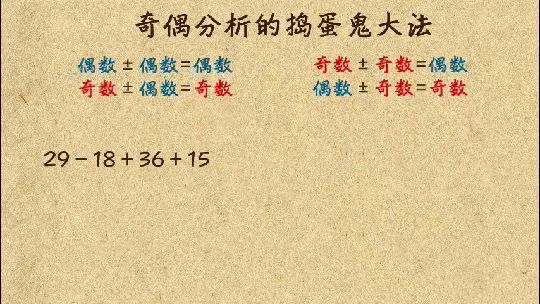 奇偶分析的捣蛋鬼大法
偶数±偶数=偶数 奇数±奇数=偶数
奇数±偶数=奇数 偶数±奇数=奇数
29-18+36+15